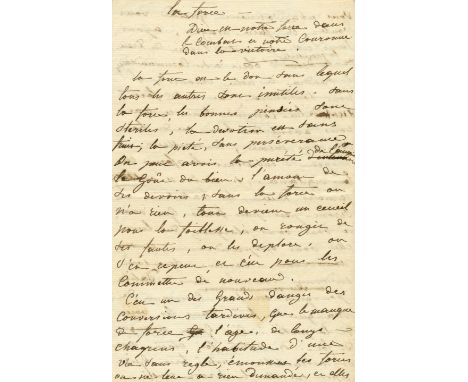 la force —
Dieu est notre force dans
le combat et notre Couronne
dans la victoire.
La force est le don sans lequel
tous les autres sont inutiles. Sans
la force les bonnes pensées sont
stériles, la dévotion est sans
la piété, sans persévérance
On peut avoir la pureté
le Goût du bien, l'amour de
ses devoirs; sans la force on
n'a rien, tout devient un écueil
pour la faiblesse, on rougit de
ses fautes, on les déplore, on
s'en repent et c'est pour les
Commettre de nouveau.
C'est un des Grands dangers des
conversions tardives, que le manque
de force l'age, de longs
chagrins, l'habitude d'une
vie sans regle, émoussent ses forces
on ne leur a rien demandé, et elles